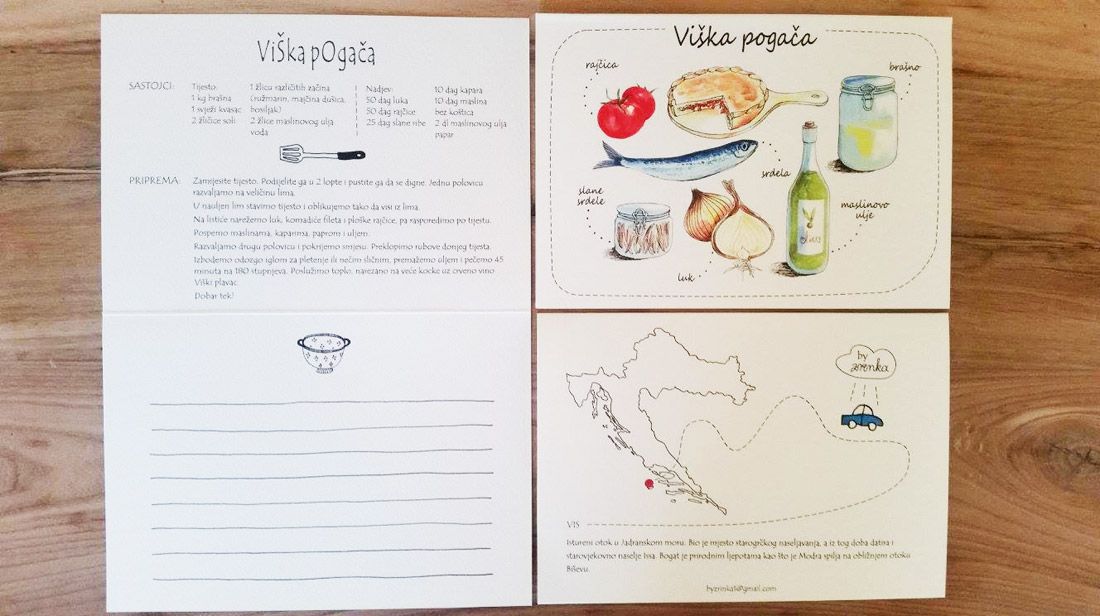 Viška pOgača
SASTOJCI:
Tijesto:
1 kg brašna
1 svježi kvasac
2 žličice soli
1 žlicu različitih začina
(ružmarin, majčina dušica,
bosiljak)
2 žlice maslinovog ulja
voda
Nadjev:
50 dag luka
50 dag rajčice
25 dag slane ribe
10 dag kapara
10 dag maslina
bez koštica
2 dl maslinovog ulja
papar
PRIPREMA:
Zamijesite tijesto. Podijelite ga u 2 lopte i pustite ga da se digne. Jednu polovicu
razvaljamo na veličinu lima.
U nauljen lim stavimo tijesto i oblikujemo tako da visi iz lima.
Na listiće narežemo luk, komadiće fileta i ploške rajčice, pa rasporedimo po tijestu.
Pospemo maslinama, kaparima, paprom i uljem.
Razvaljamo drugu polovicu i pokrijemo smjesu. Preklopimo rubove donjeg tijesta.
Izbodemo odozgo iglom za pletenje ili nečim sličnim, premažemo uljem i pečemo 45
minuta na 180 stupnjeva. Poslužimo toplo, narezano na veće kocke uz crveno vino
Viški plavac.
Dobar tek!
Viška pogača
rajčica
brašno
srdela
slane
srdele
maslinovo
ulje
luk
by
zrinka
VIS
Istureni otok u Jadranskom moru. Bio je mjesto starogrčkog naseljavanja, a iz tog doba datira i
starovjekovno naselje Issa. Bogat je prirodnim ljepotama kao što je Modra spilja na obližnjem otoku
Biševu.
byzrinka1@gmail.com